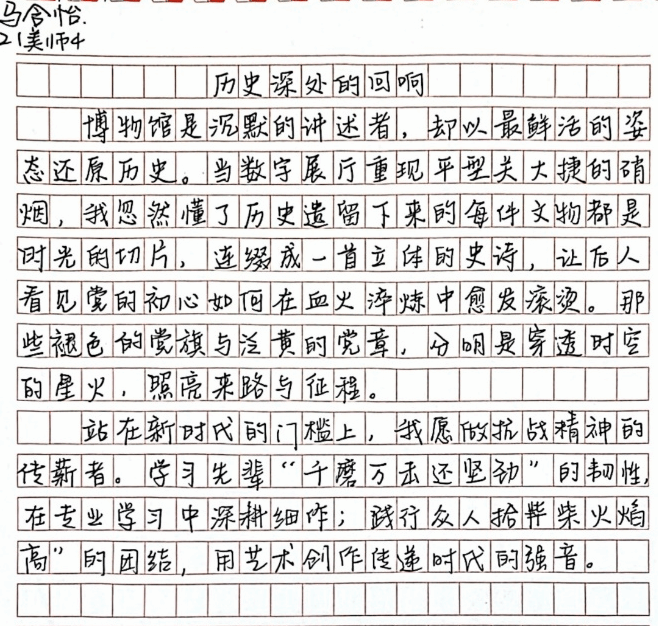 马含怡.
21美师4
历史深处的回响
博物馆是沉默的讲述者，却以最鲜活的姿
态还原历史。当数字展厅重现平型关大捷的硝
烟，我忽然懂了历史遗留下来的每件文物都是
时光的切片，连缀成一首立体的史诗，让后人
看见党的初心如何在血火淬炼中愈发滚烫。那
些褪色的党旗与泛黄的党章，分明是穿透时空
的星火，照亮来路与征程。
站在新时代的门槛上，我愿做抗战精神的
传薪者。学习先辈“千磨万击还坚劲”的韧性，
在专业学习中深耕细作；践行众人拾柴火焰
高”的团结，用艺术创作传递时代的强音。